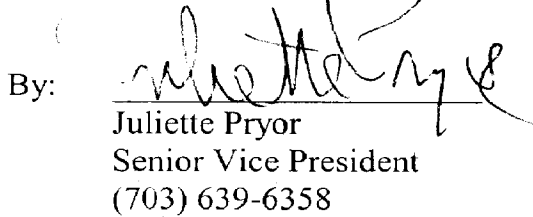 By: Juliette Pryor
Juliette Pryor
Senior Vice President
(703) 639-6358